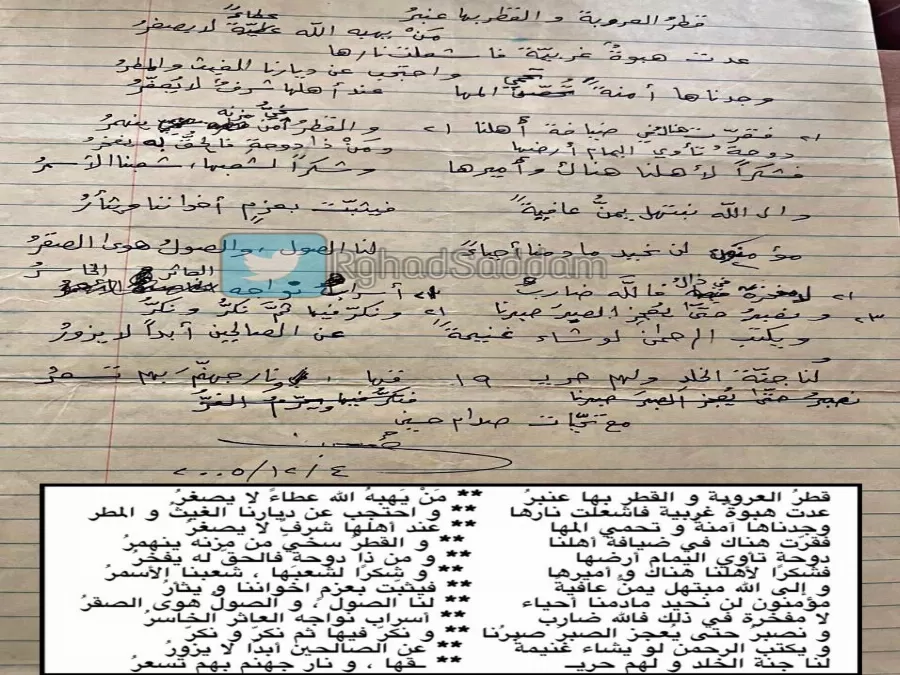 قطرُ العروبة و القطر بها عنبرُ
مَنْ يهبه الله عطاءً لا يصغرُ
عدت هبوةٌ غربيّة فاشعلت نارها
و احتجب عن ديارنا الغيث و المطرُ
وجدناها أمنةً تحمي المها عند أهلها شرفٌ لا يصغّرُ
فقرّت هناك في ضيافة أهلنا و القطرُ سخيٌّ مزنه ينهمرُ
دوحةٌ تأوي اليمام أرضها ومَنْ ذا دوحة فالحقُّ له يفخرُ
فشكراً لأهلنا هناك وأميرها وشكراً لشعبها، شعبنا الأسمرُ
والى الله نبتهل يمنُّ عافيةً فيثبّت بعزمٍ أخواننا ويثأرُ
مؤمنون لن نحيد ما دمنا أحياءً لنا الصول، والصولُ هوى الصقرُ
RghadSaddam
العاثر الخاسرُ
لا مفخرة في ذلك فالله ضاربٌ أسراب نواجه
و نصبرُ حتّى يُعجز الصبرَ صبرنا و نكرّ فيها ثمَّ نكرُّ و نكرُّ
و يكتب الرحمنُ لو شاء غنيمةً عن الصالحين أبداً لا يزورُ
لنا جنّة الخلد ولهم حريـ ١٩ ـقها، و نار جهنّم بهم تسعرُ
نصبرُ حتّى يُعجز الصبرَ صبرنا
مع تحيّات صدام حسين
٢٠٠٥/١٢/٤
قطرُ العروبة و القطر بها عنبرُ ** مَنْ يَهبهُ الله عطاءً لا يصغرُ
عدت هبوةٌ غربية فاشعلت نارها ** و احتجب عن ديارنا الغيثُ و المطر
وجدناها آمنة و تحمي المها ** عند أهلها شرفٌ لا يصغرُ
فقرت هناك في ضيافة أهلنا ** و القطرُ سخي من مزنه ينهمرُ
دوحة تأوي اليمام أرضها ** و من ذا دوحة فالحق له يفخرُ
فشكرًا لأهلنا هناك و أميرها ** و شكرًا لشعبها ، شعبنا الأسمرُ
و إلى الله مبتهل يمنُ عافيةً ** فيثبت بعزم اخواننا و يثأرُ
مؤمنون لن نحيد مادمنا أحياء ** لنا الصولُ ، و الصولُ هوى الصقرُ
لا مفخرة في ذلك فالله ضارب ** أسراب نواجه العاثر الخاسرُ
و نصبرُ حتى يُعجز الصبرَ صبرُنا ** و نكرُ فيها ثم نكرَ و نكرُ
و يكتب الرحمن لو يشاء غنيمة ** عن الصالحين أبدًا لا يزورُ
لنا جنة الخلد و لهم حريـ ** ـقها ، و نار جهنم بهم تسعرُ